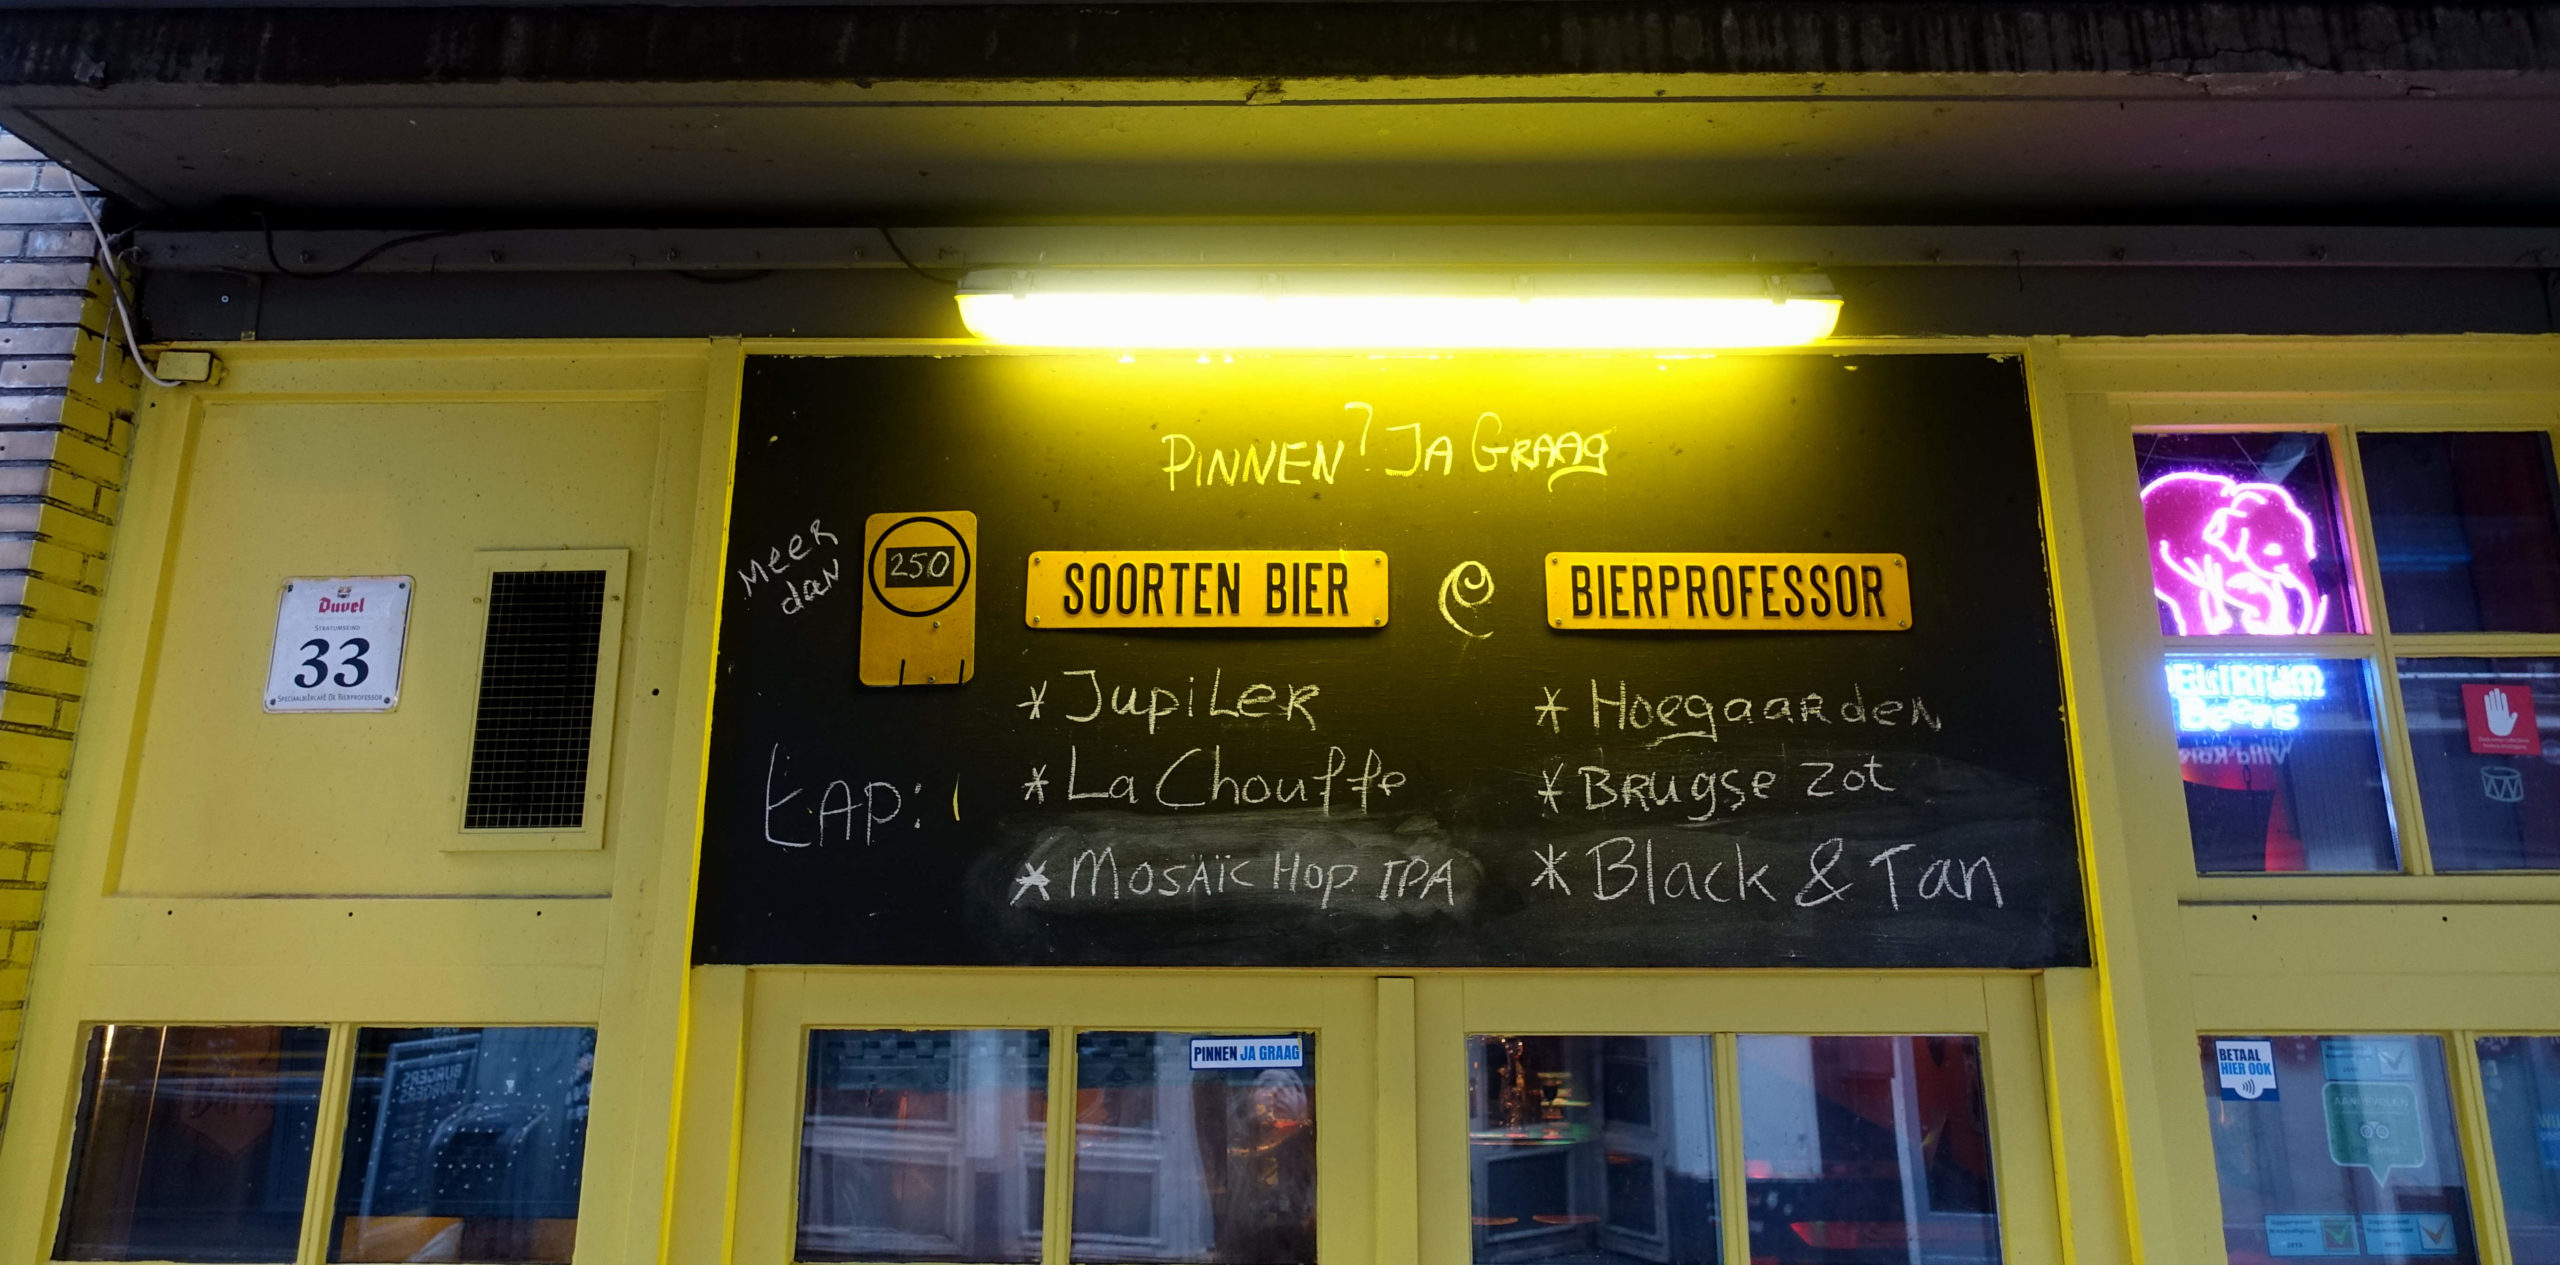 PINNEN? JA GRAAG
Meer
dan
250
SOORTEN BIER @ BIERPROFESSOR
* Jupiler
* Hoegaarden
tAP:
* La Chouffe
* Brugse Zot
* Mosaïc Hop IPA
* Black & Tan
Duvel
STRATUMSEIND
33
SPECIAALBIERCAFÉ DE BIERPROFESSOR
DELIRIUM
Beers
PINNEN JA GRAAG
BETAAL
HIER OOK
BURGERS
BURGERS